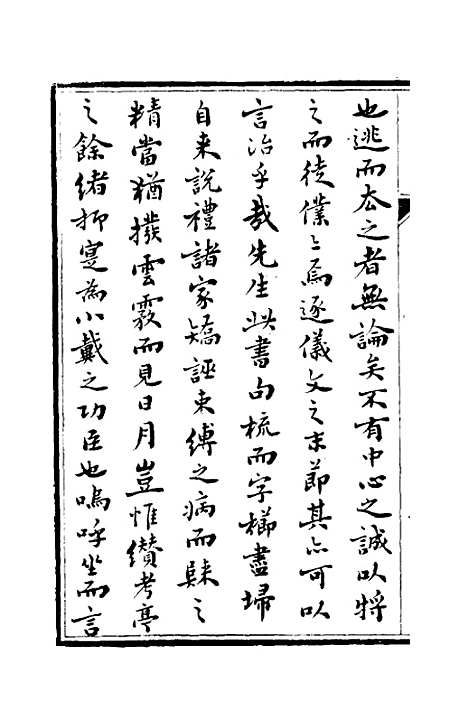 也逃而去之者無論矣不有中心之誠以將
之而徒僕〻焉逐儀文之末節其亦可以
言治乎哉先生此書句梳而字櫛盡埽
自来說禮諸家矯誣束縛之病而歸之
精當猶撥雲霧而見日月豈惟纘考亭
之餘緒抑寔為小戴之功臣也嗚呼坐而言